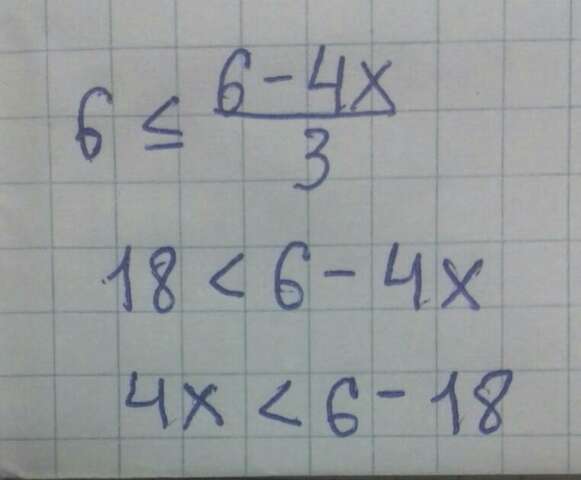 6 ≤ (6-4x)/3
18 < 6 - 4x
4x < 6 - 18